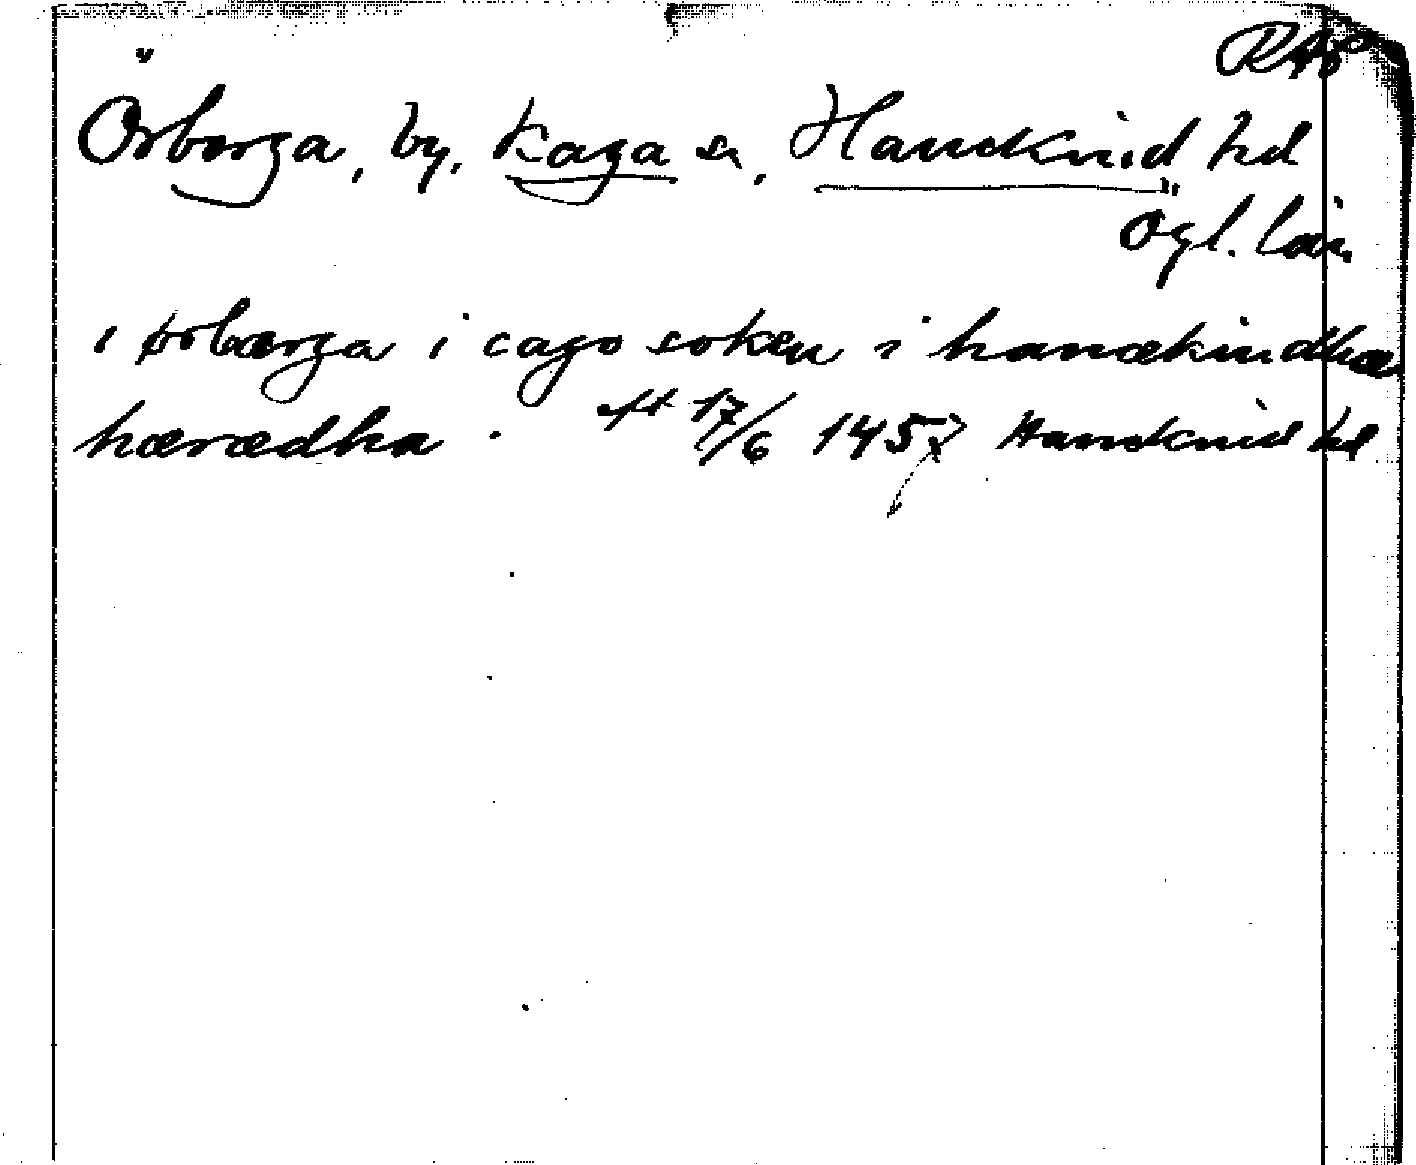 RAp
Örberga, by, Kaga sn, Hanekind hd
Ögl. län
i ørbærga i cago soken i hanækindhæ
hærædha. eft 17/6 1457 Hanekind hd